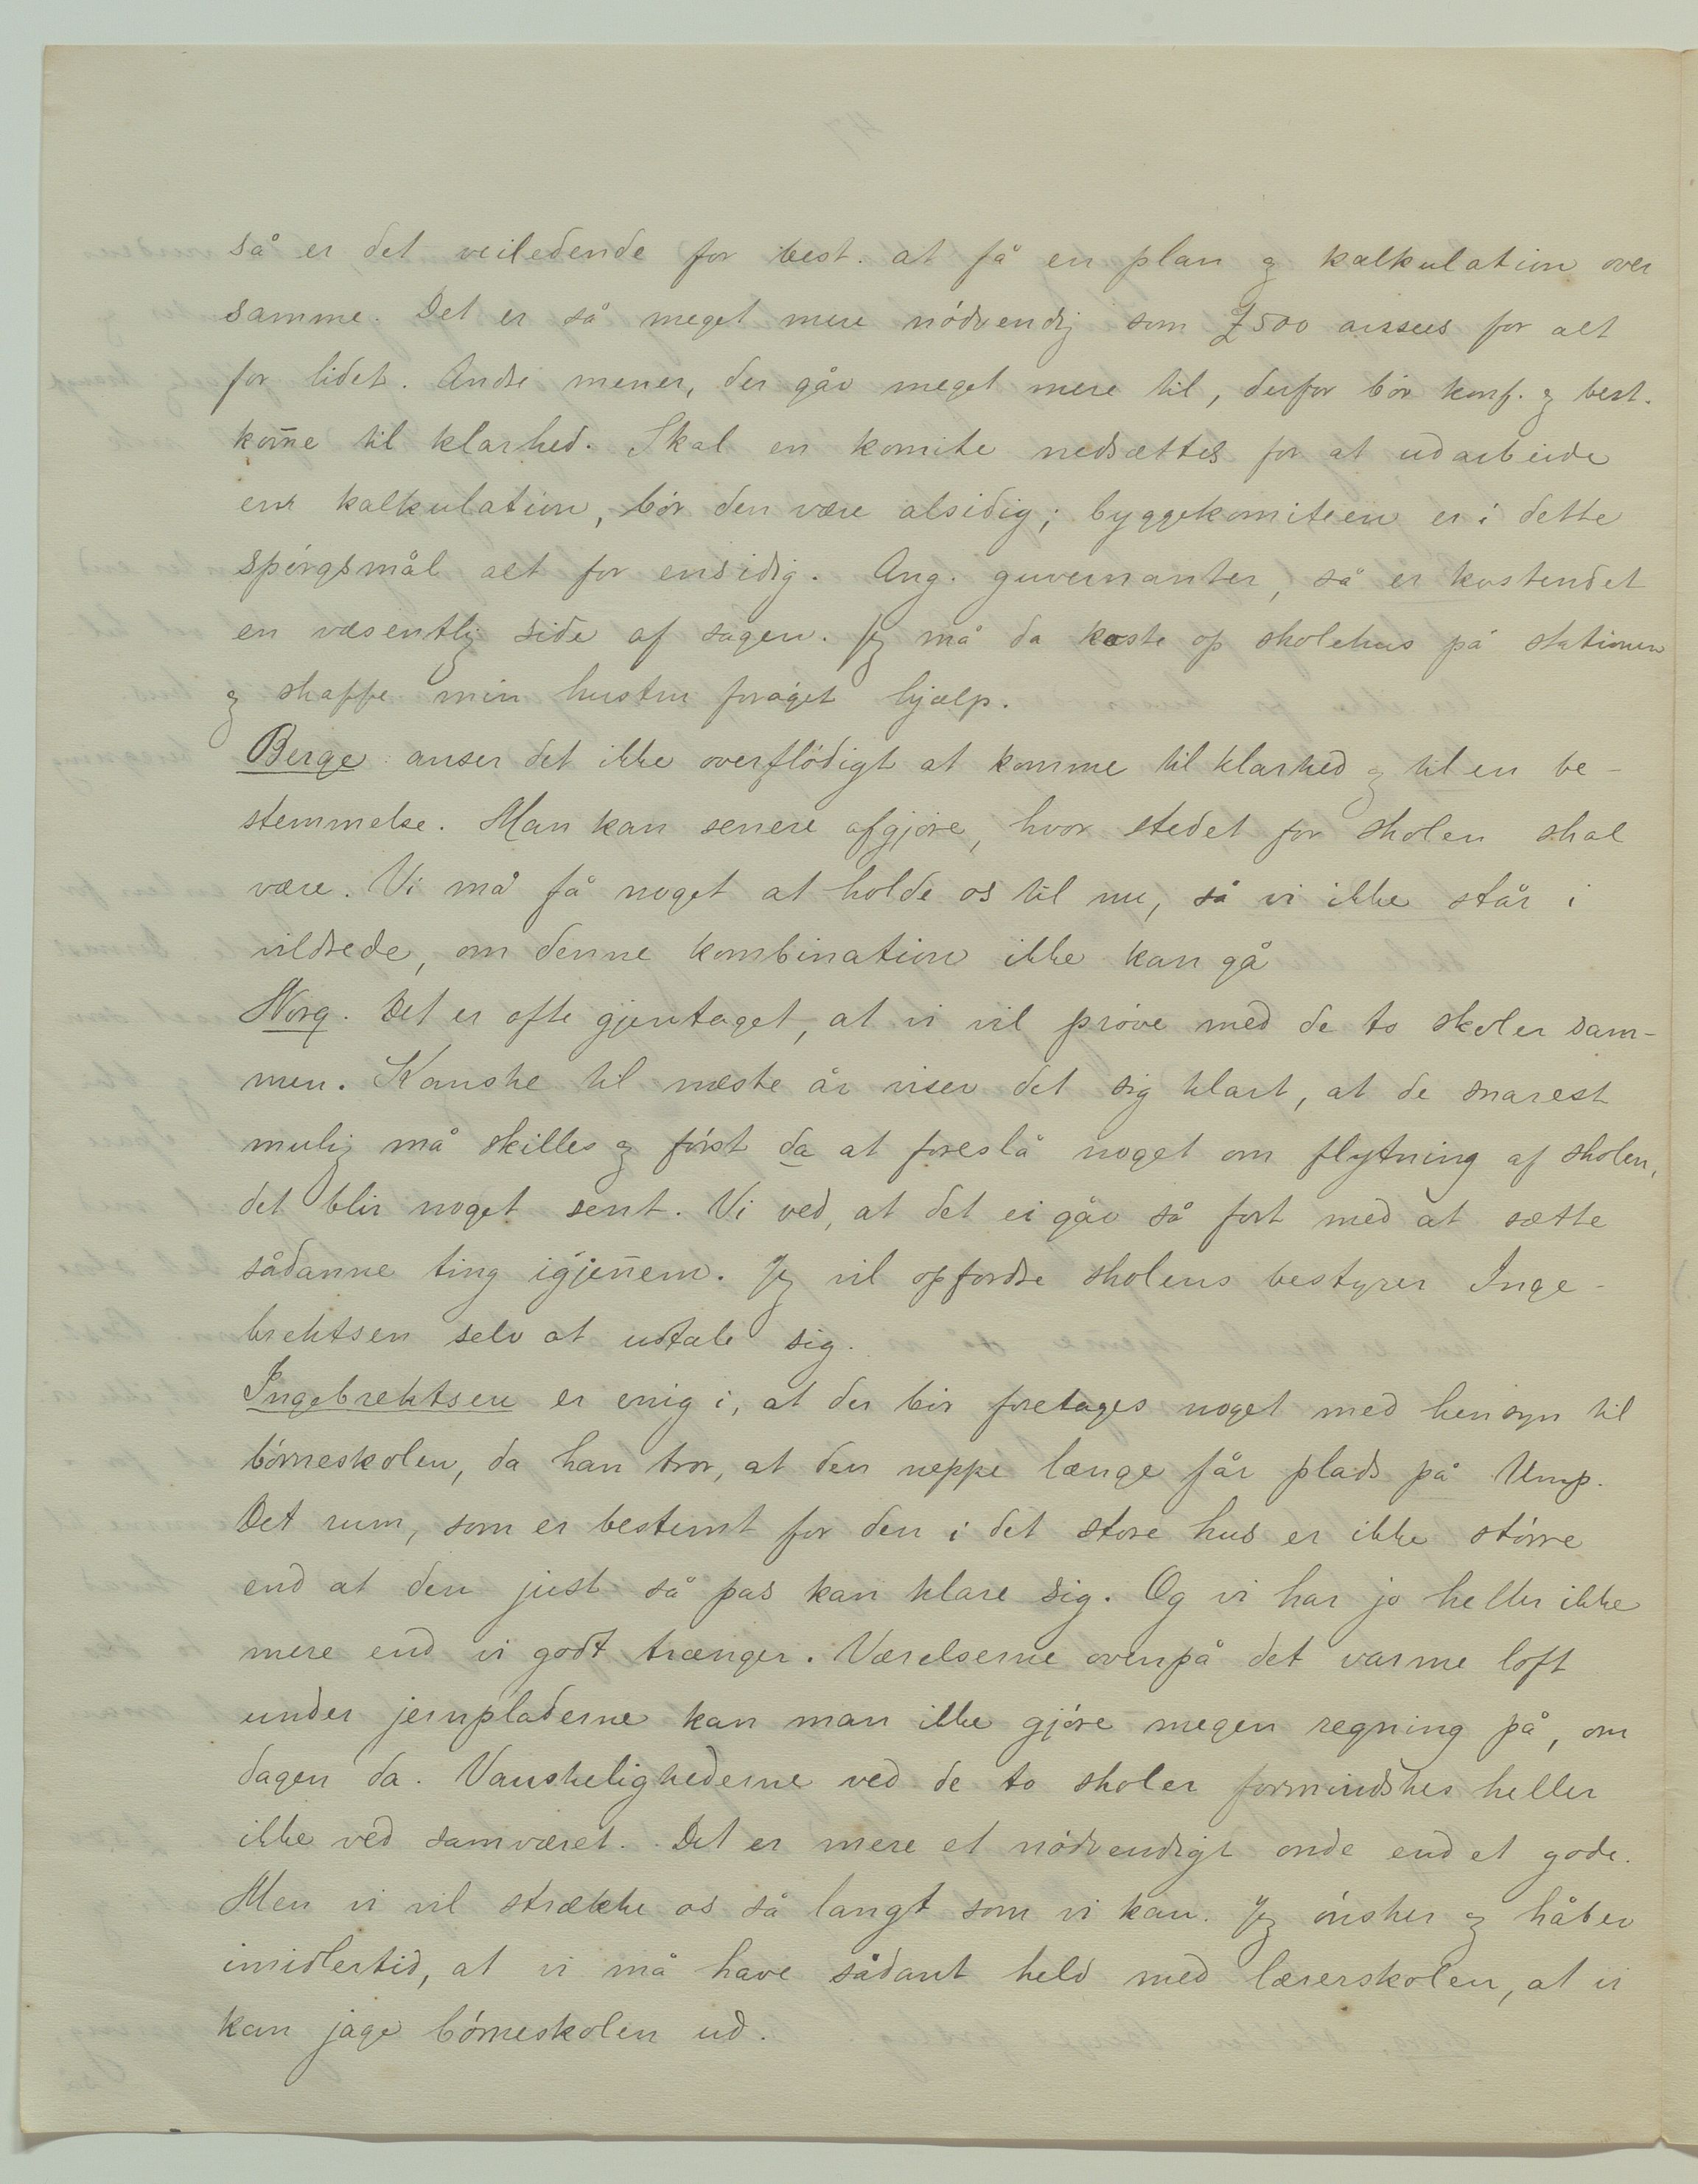 så er det veiledende for best. at få en plan og kalkulation over
samme. Det er så meget mere nödvendig som £500 ansees for alt
for lidet. Andre mener, der går meget mere til, derfor bör konf. og best.
kom̄e til klarhed. Skal en komite nedsættes for at udarbeide
en kalkulation, bör den være alsidig; byggekomiteen er i dette
spörgsmål alt for ensidig. Ang. guvernanter, så er kostendet
en væsentlig side af sagen. Jeg må da koste op skolehus på stationen
og skaffe min hustru foröget hjælp.
Berge anser det ikke overflödigt at komme til klarhed og til en be-
stemmelse. Man kan senere afgjöre, hvor stedet for skolen skal
være. Vi må få noget at holde os til nu, så vi ikke står i
vildrede, om denne kombination ikke kan gå
Norg. Det er ofte gjentaget, at vi vil pröve med de to skoler sam-
men. Kanske til næste år viser det sig klart, at de snarest
mulig må skilles og först da at foreslå noget om flytning af skolen,
det blir noget sent. Vi ved, at det ei går så fort med at sætte
sådanne ting igjen̄em. Jeg vil opfordre skolens bestyrer Inge-
brektsen selv at udtale sig.
Ingebrektsen er enig i, at der bör foretages noget med hensyn til
börneskolen, da han tror, at den neppe længe får plads på Ump.
Det rum, som er bestemt for den i det store hus er ikke större
end at den just så pas kan klare sig. Og vi har jo heller ikke
mere end vi godt trænger. Værelserne ovenpå det varme loft
under jernpladerne kan man ikke gjöre megen regning på, om
dagen da. Vanskelighederne ved de to skoler formindskes heller
ikke ved samværet. Det er mere et nödvendigt onde end et gode.
Men vi vil strække os så langt som vi kan. Jeg önsker og håber
imidlertid, at vi må have sådant held med lærerskolen, at vi
kan jage börneskolen ud.